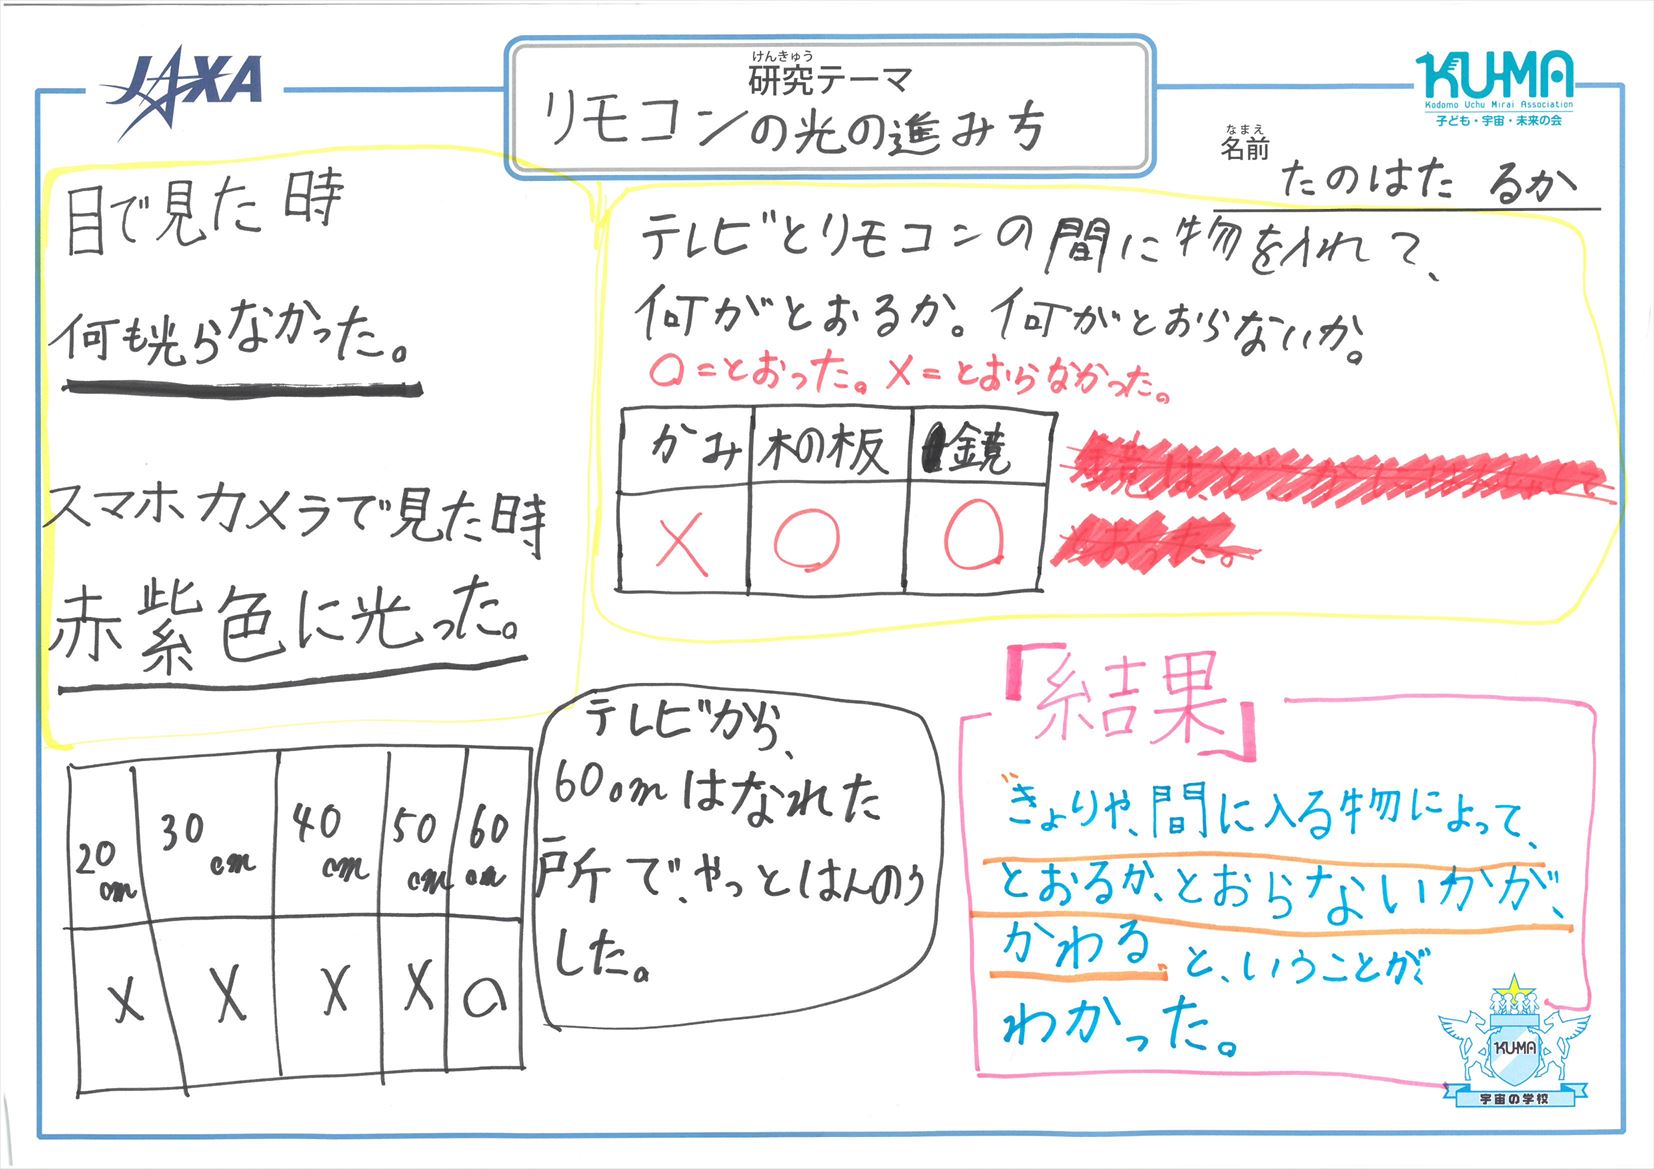 JAXA
けんきゅう
研究テーマ
リモコンの光の進み方
KU-MA
Kodomo Uchu Mirai Association
子ども・宇宙・未来の会
なまえ
名前
たのはた るか
目で見た時
何も光らなかった。
スマホカメラで見た時
赤紫色に光った。
テレビとリモコンの間に物を入れて、
何がとおるか。何がとおらないか。
○=とおった。×=とおらなかった。
かみ 木の板 鏡
× ○ ○
20cm 30cm 40cm 50cm 60cm
× × × × ○
テレビから、
60cmはなれた
所で、やっとはんのう
した。
「結果」
きょりや、間に入る物によって、
とおるか、とおらないかが、
かわる。と、いうことが
わかった。
KU-MA
宇宙の学校